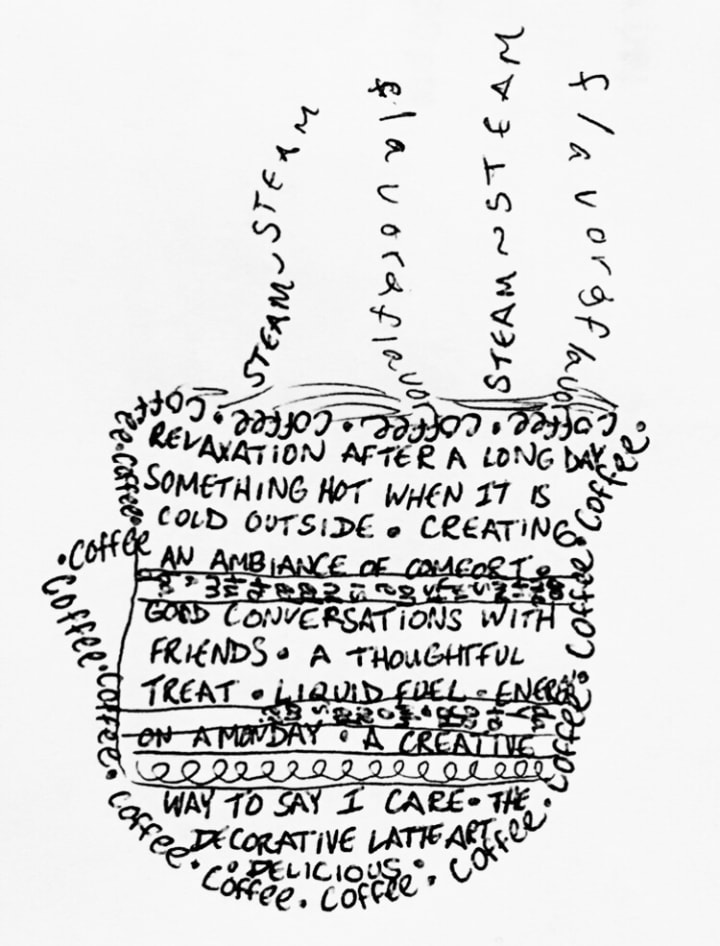 STEAM~STEAM
flavorflavor
STEAM~STEAM
flavorflavor
coffee. coffee. coffee. coffee.
RELAXATION AFTER A LONG DAY
SOMETHING HOT WHEN IT IS
COLD OUTSIDE • CREATING
AN AMBIANCE OF COMFORT •
GOOD CONVERSATIONS WITH
FRIENDS • A THOUGHTFUL
TREAT • LIQUID FUEL • ENERGY
ON A MONDAY • A CREATIVE
WAY TO SAY I CARE • THE
DECORATIVE LATTE ART
• DELICIOUS •
coffee.coffee.
.coffee
coffee.coffee.coffee.coffee.coffee.coffee.coffee.coffee.coffee.